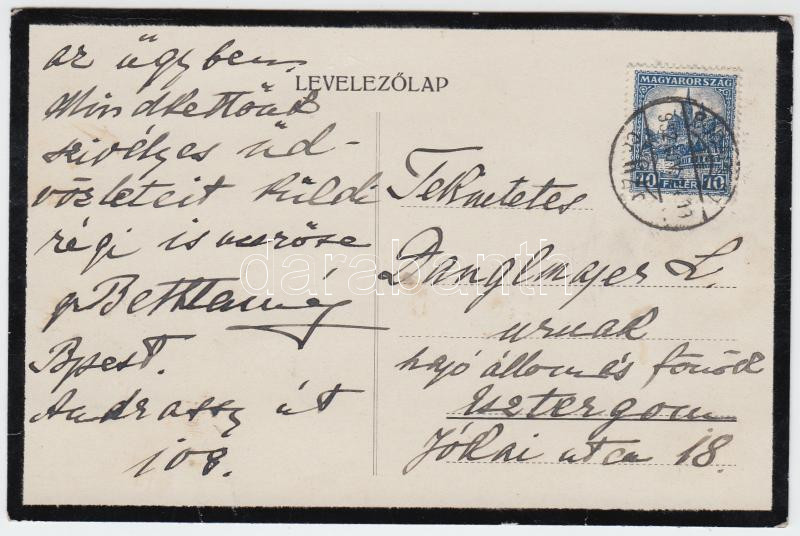 az ügyben.
Mindkettőnk
szivélyes üd-
vözleteit küldi
régi ismerőse
Bethlen
Bpest.
Andrassy út
108.
LEVELEZŐLAP
MAGYARORSZÁG
10 FILLÉR 10
Tekintetes
Danglmajer L.
urnak
hajó állomás főnök
Esztergom
Jókai utca 18.
darabanth